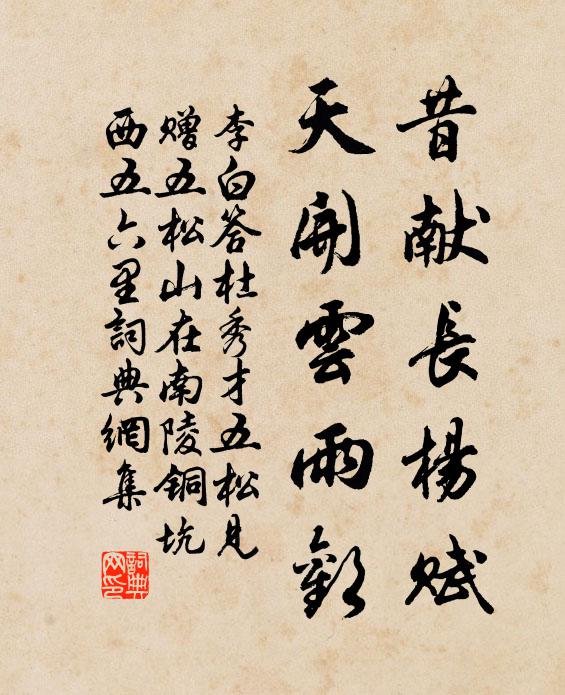 昔献長楊賦
天開雲雨歡
李白答杜秀才五松見
贈五松山在南陵銅坑
西五六里詞典網集
詞典
网印